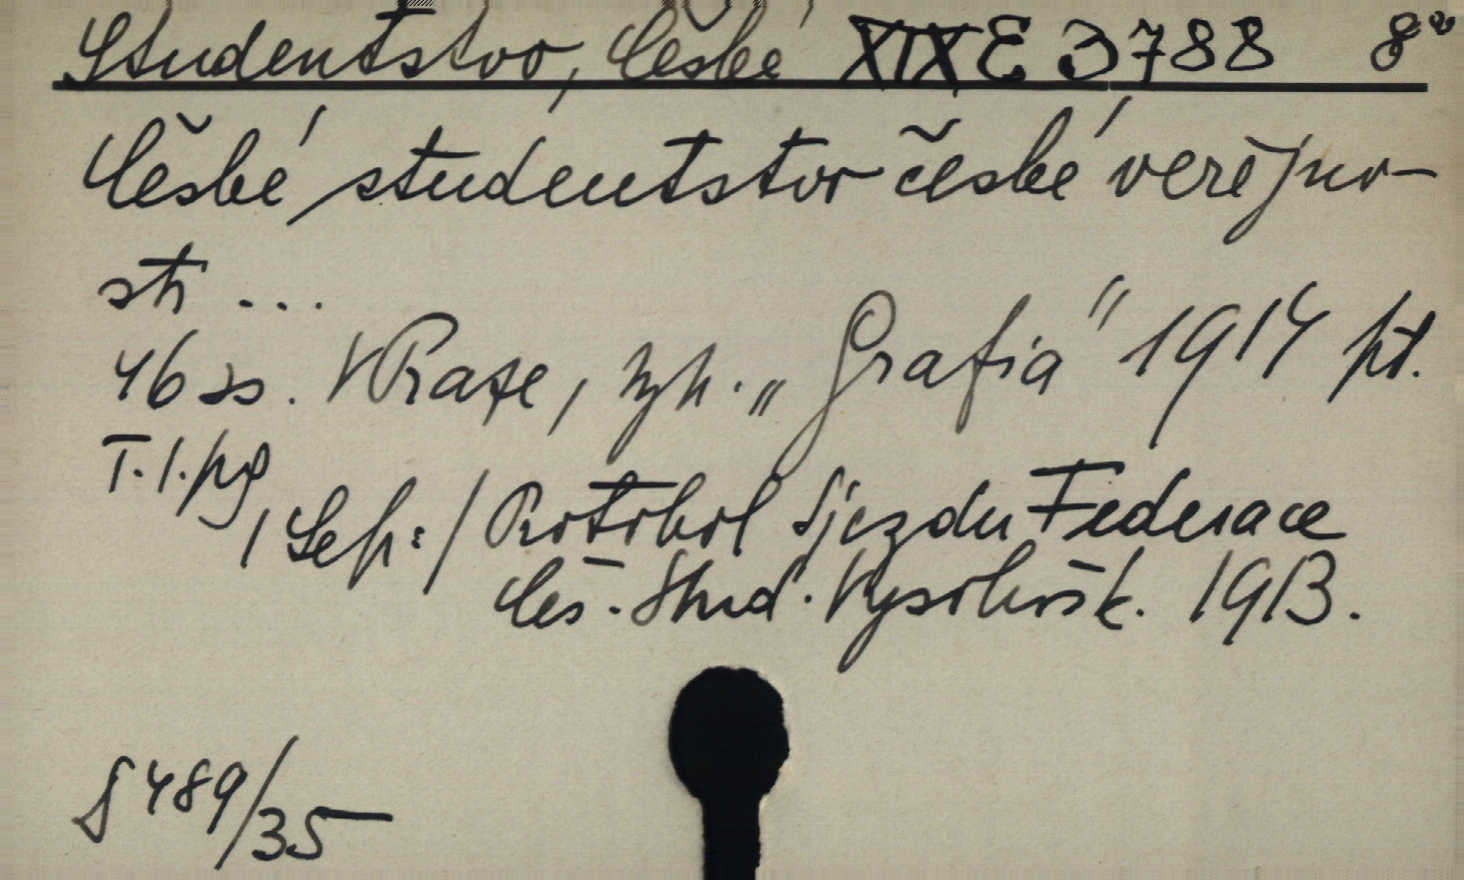 Studentstvo, České XIX E 3788 8°
České studentstvo české veřejno-
sti ...
46 ss. V Praze, kph. „Grafia" 1914 pt.
T. 1. pg
/Sep:/ Protokol Sjezdu Federace
Čes. Stud. Vysokošk. 1913.
§ 489/35